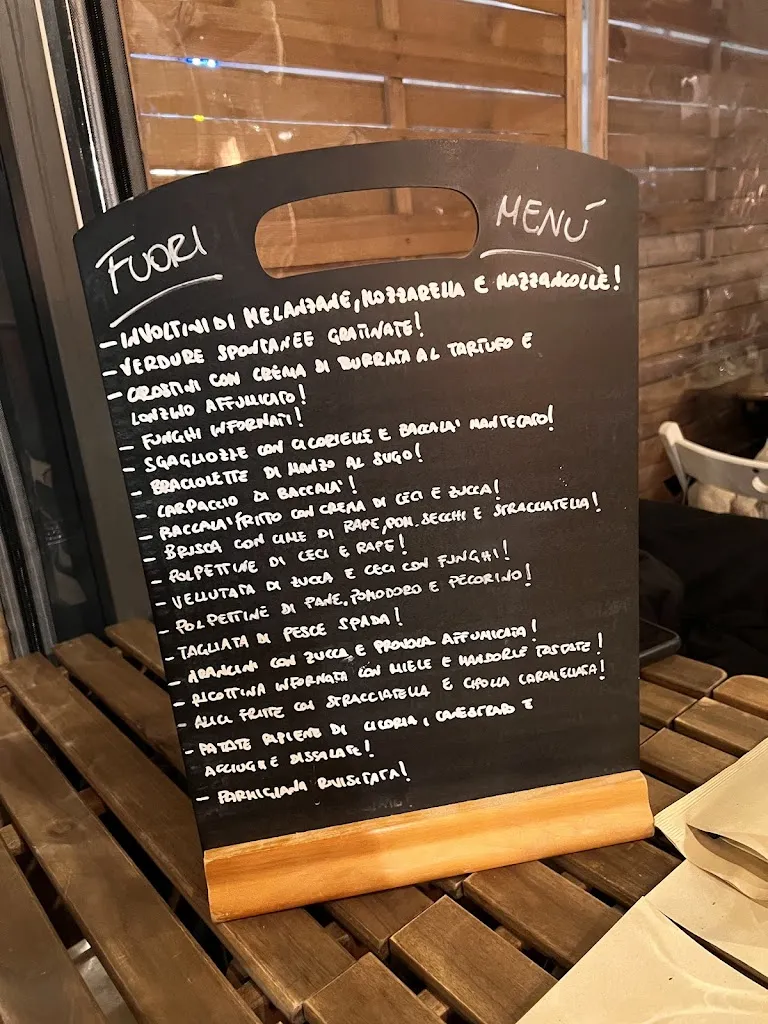 FUORI MENÚ
- INVOLTINI DI MELANZANE, MOZZARELLA E MAZZANCOLLE!
- VERDURE SPONTANEE GRATINATE!
- CROSTINI CON CREMA DI BURRATA AL TARTUFO E
LONZINO AFFUMICATO!
- FUNGHI INFORNATI!
- SGAGLIOZZE CON CICORIELLE E BACCALA' MANTECATO!
- BRACIOLETTE DI MANZO AL SUGO!
- CARPACCIO DI BACCALA'!
- BACCALA' FRITTO CON CREMA DI CECI E ZUCCA!
- BRUSCA CON CIME DI RAPE, POM. SECCHI E STRACCIATELLA!
- POLPETTINE DI CECI E RAPE!
- VELLUTATA DI ZUCCA E CECI CON FUNGHI!
- POLPETTINE DI PANE, POMODORO E PECORINO!
- TAGLIATA DI PESCE SPADA!
- ARANCINI CON ZUCCA E PROVOLA AFFUMICATA!
- RICOTTINA INFORNATA CON MIELE E MANDORLE TOSTATE!
- ALICI FRITTE CON STRACCIATELLA E CIPOLLA CARAMELLATA!
- PATATE RIPIENE DI CICORIA, CANESTRATO E
ACCIUGHE DISSALATE!
- PARMIGIANA RIVISITATA!